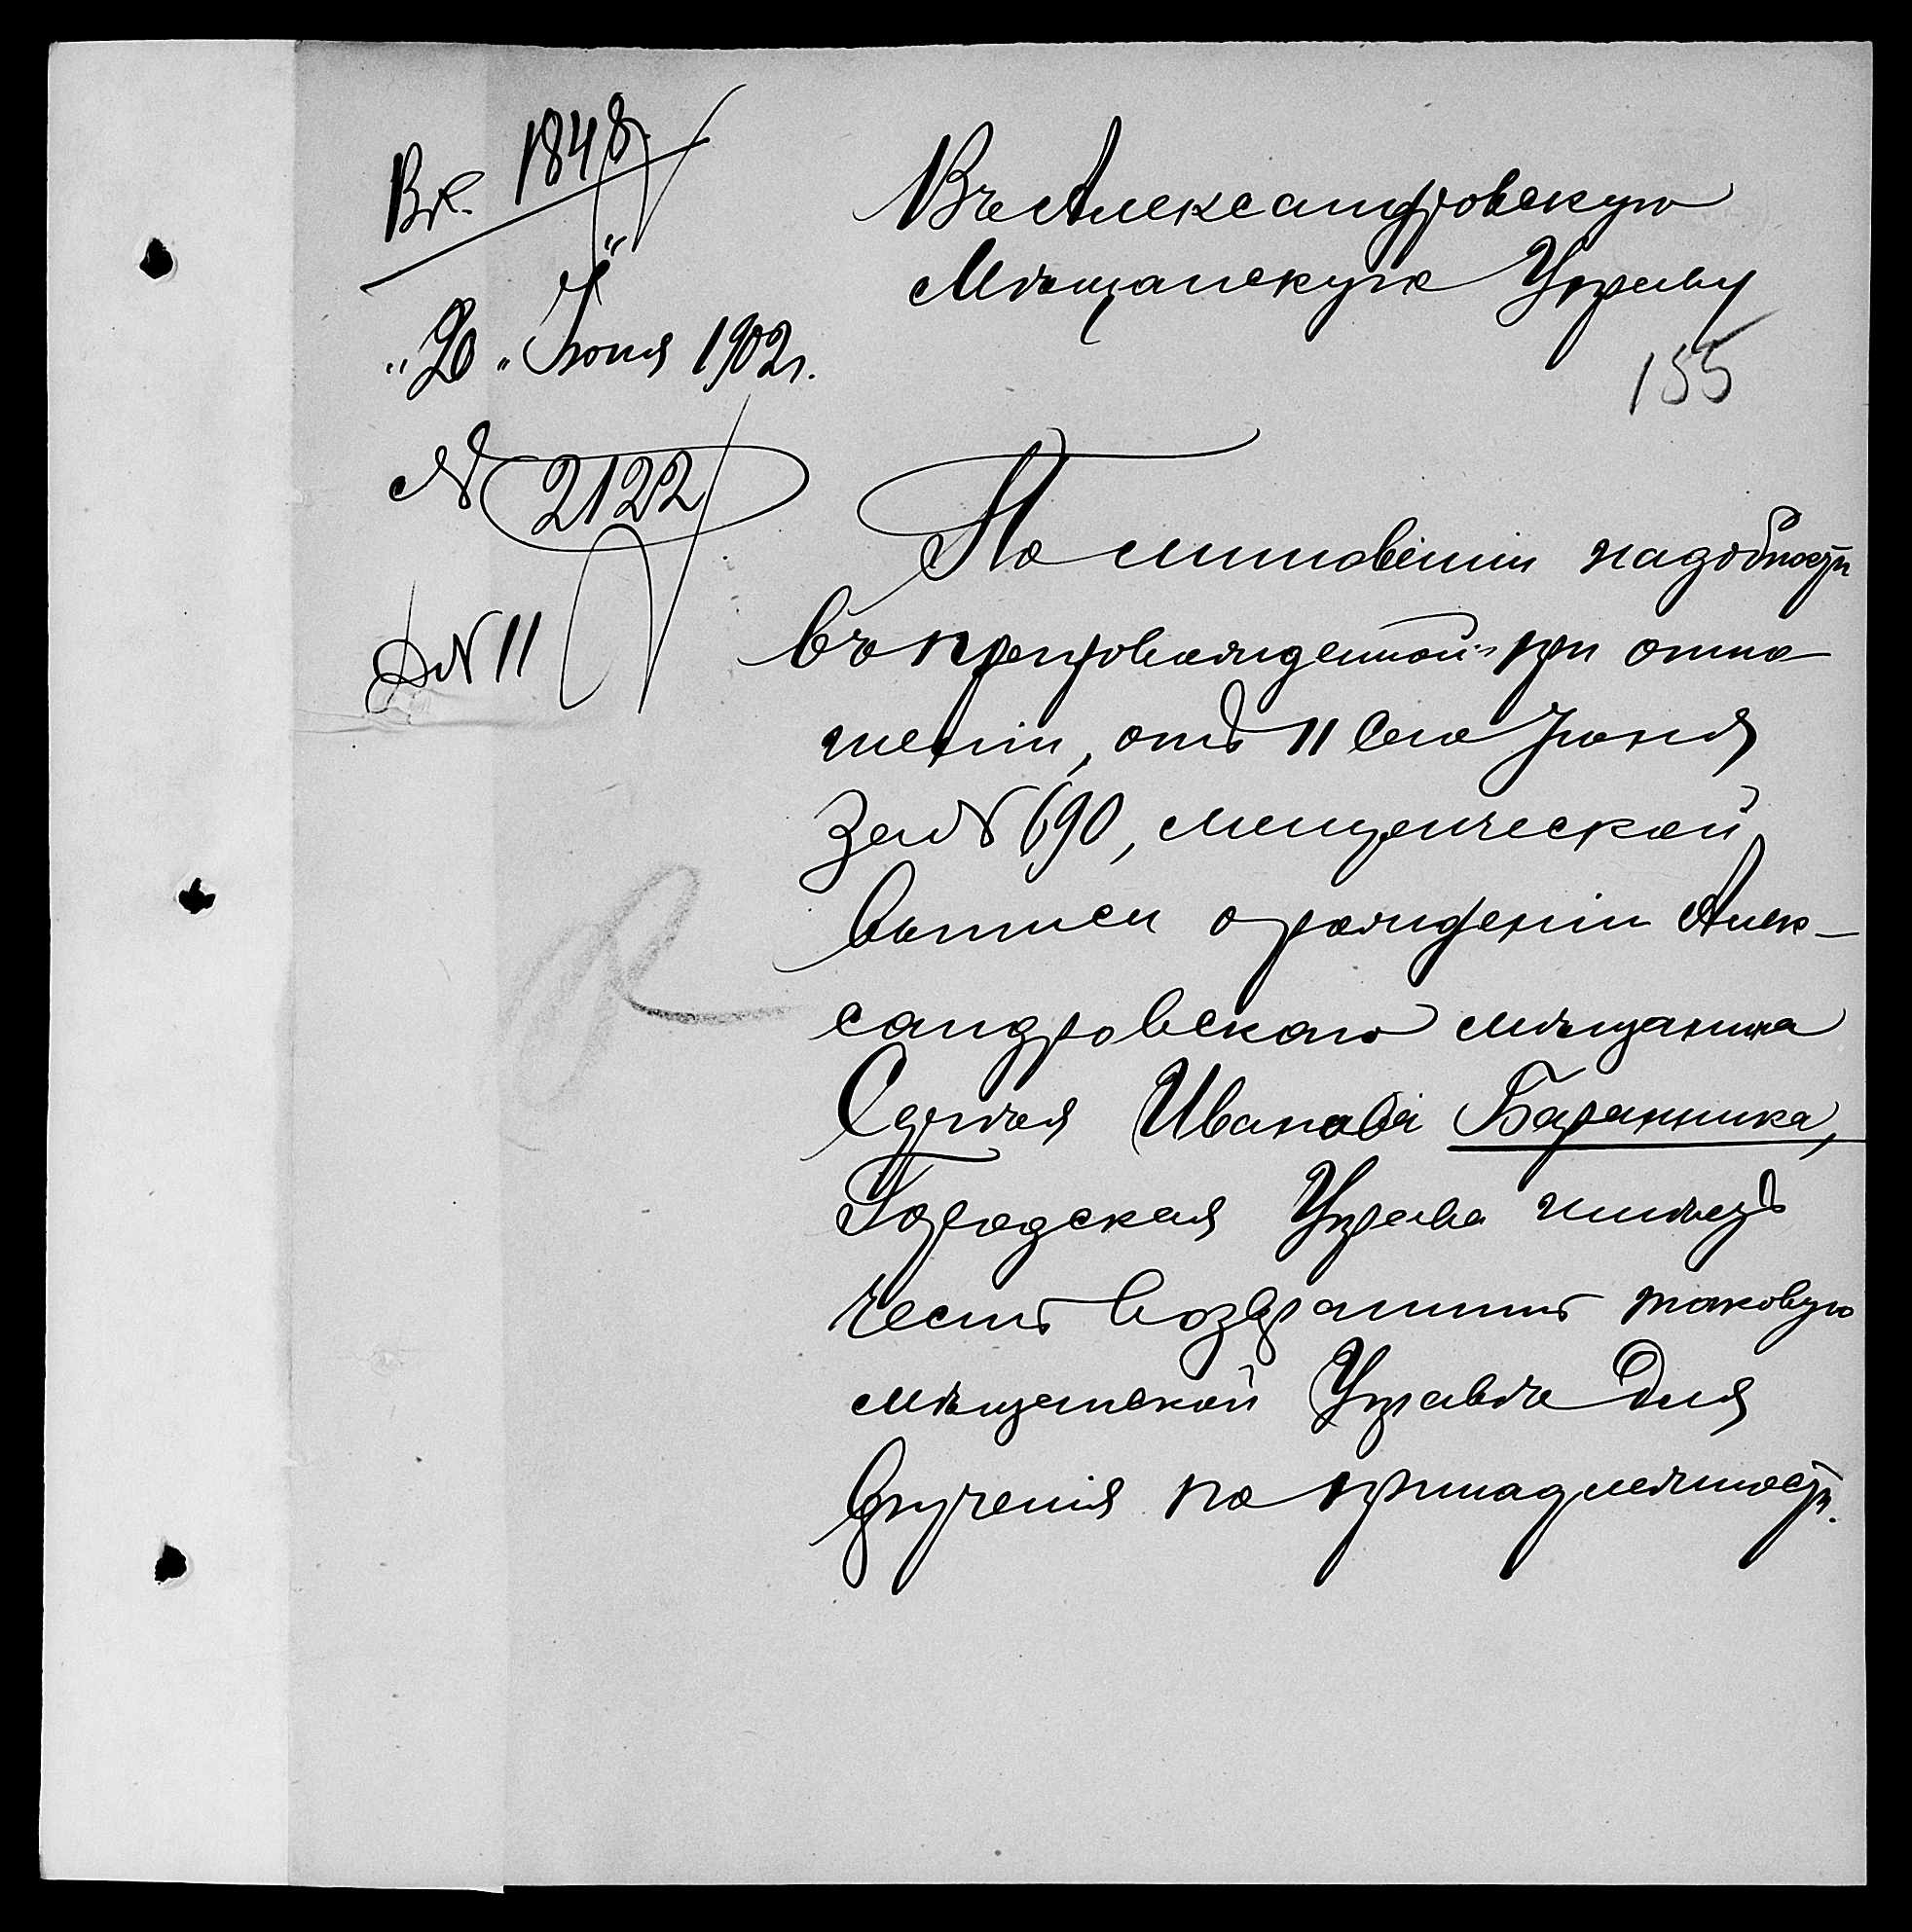 Вх. 1848
"20" Іюня 1902 г.
№ 2122
Д № 11
Въ Александровскую
Мѣщанскую Управу
155
По минованіи надобности
въ препровожденной при отно
шеніи, отъ 11 сего Іюня
за № 690, метрической
выписи о рожденіи Алек-
сандровскаго мѣщанина
Сергѣя Иванова Баранника,
Городская Управа имѣетъ
честь возвратить таковую
мѣщанской Управѣ для
врученія по принадлежности.